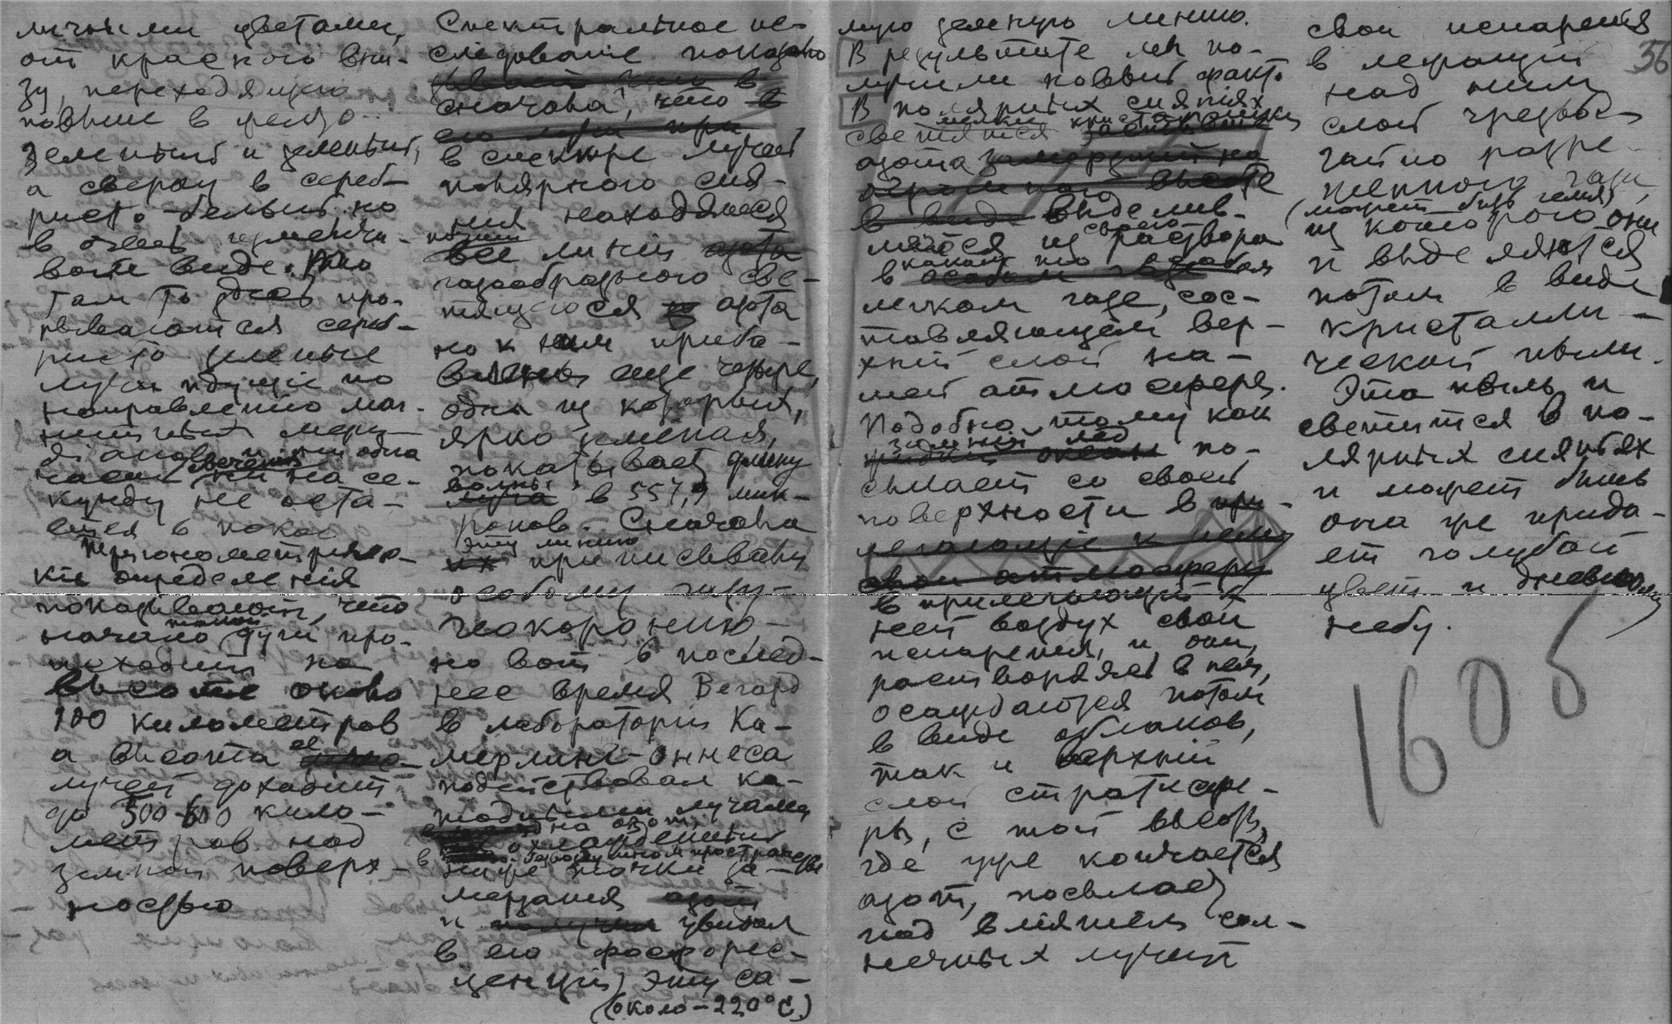 личными цветами,
от красного вни-
зу, переходящаго
повыше в
зеленый и зеленый,
а сверху в сереб-
ристо-белый, но
в очень изменчи-
вом виде.
там то здесь про-
рываются сереб-
ристо зеленые
лучи идущие по
направлению маг-
нитных мери-
дианов и ни одна
свечения на се-
кунду не оста-
ется в покое
Тригонометричес-
кие определения
показывают, что
начало дуги про-
исходит на
высоте около
100 километров
а высота ее
лучей доходит
до 500-600 кило-
метров над
земной поверх-
ностью
Спектральное ис-
следование показало
сначала, что
в спектре лучей
полярного сия-
ния находятся
почти
все линии
газообразного све-
тящегося азота
но к ним приба-
влены еще четыре,
одна из которых,
ярко зеленая,
показывает длину
волны в 557,7 мик-
ронов. Сначала
эту линию
приписывали
особому газу -
геокоронию, -
но вот в послед-
нее время Вегард
в лаборатории Ка-
мерлинг-Оннеса
подействовал ка-
тодными лучами
на азот
охлажденный
в безвоздушном пространстве
ниже точки за-
мерзания
и увидал
в его фосфорес-
ценции эту са-
(около -220°С.)
мую зеленую линию.
В результате мы по-
лучили новый факт.
В полярных сияниях
светятся мелкие кристаллики
азота
выделив-
шиеся из своего раствора
в каком то
легком газе, сос-
тавляющем вер-
хний слой на-
шей атмосферы.
Подобно тому как
зимний лед по-
сылает со своей
поверхности
в прилегающий к
ней воздух свои
испарения, и они,
растворяясь в нем,
осаждаются потом
в виде облаков,
так и верхний
слой стратосфе-
ры, с той высоты,
где уже кончается
азот, посылает
под влиянием сол-
нечных лучей
свои испарения
в лежащий
над ним
слой чрезвы-
чайно разре-
женного газа,
(может быть гелия)
из которого они
и выделяются
потом в виде
кристалли-
ческой пыли.
Эта пыль и
светится в по-
лярных сияниях
и может быть
она же прида-
ет голубой
цвет и дневному
небу.
36
160б